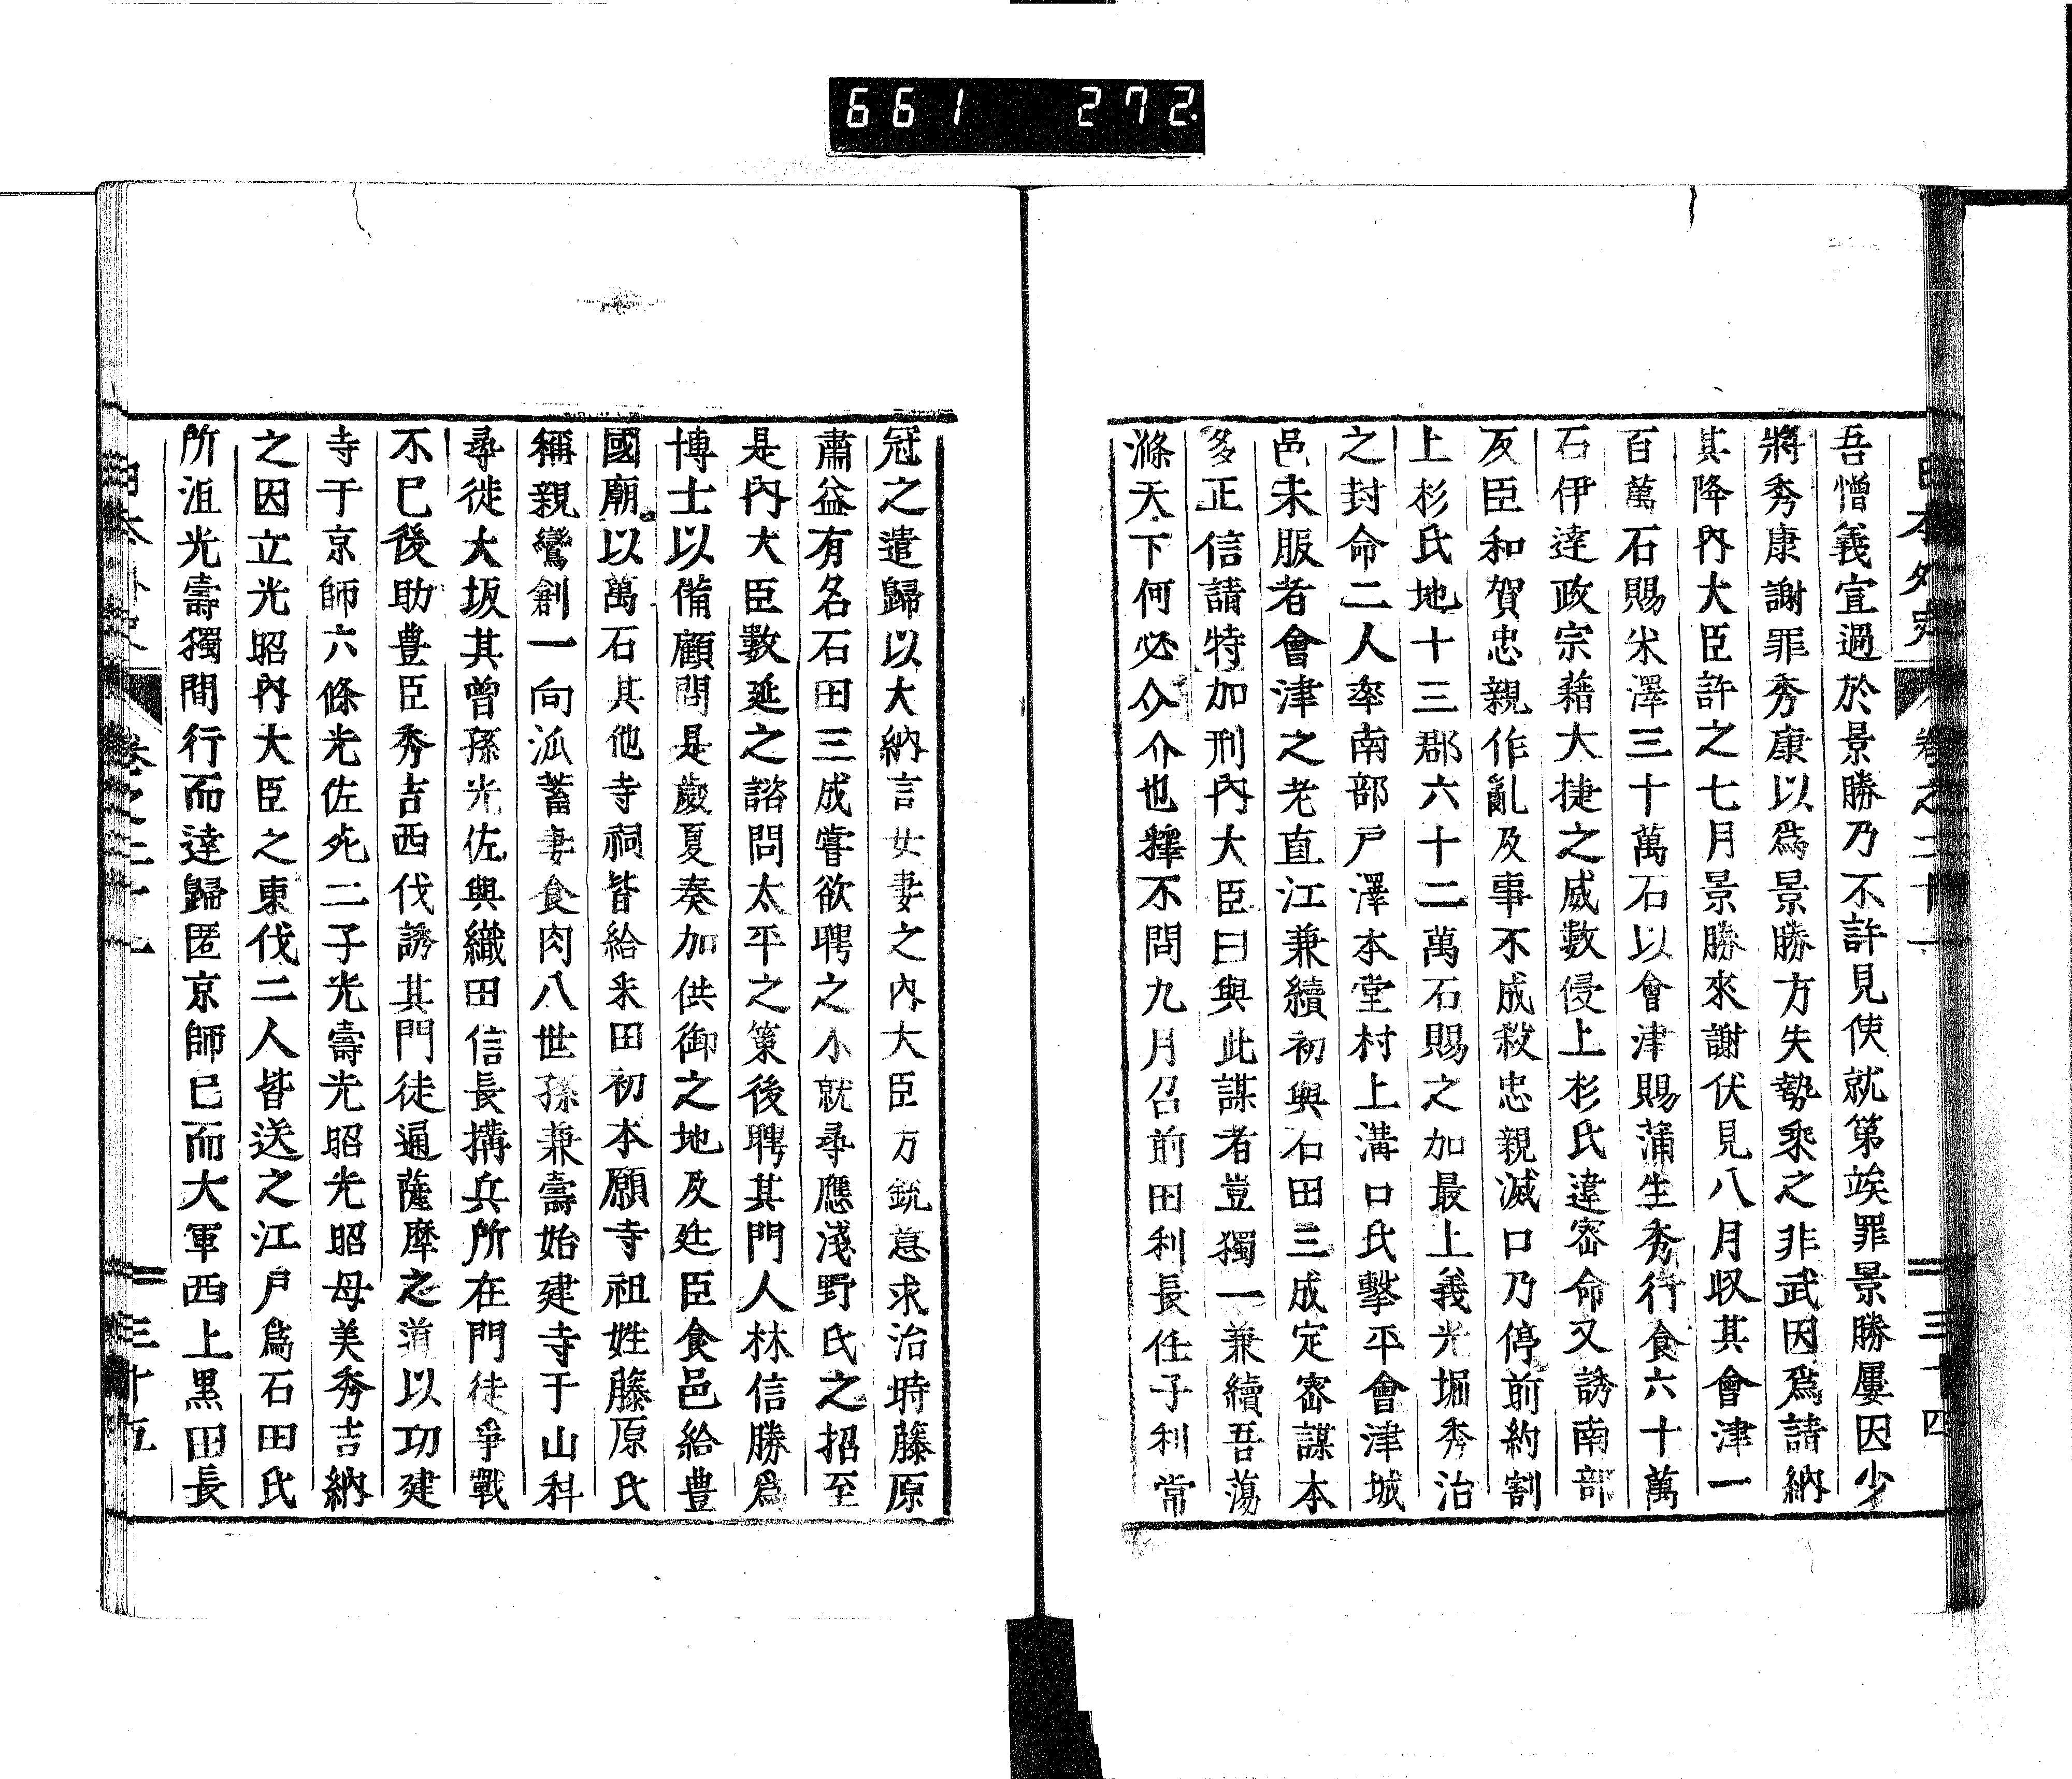 661 272.
日本外史 卷之二十一 三十四
吾憎義宣過於景勝乃不許見使就第竢罪景勝屢因少
將秀康謝罪秀康以爲景勝方失勢乘之非武因爲請納
其降內大臣許之七月景勝來謝伏見八月収其會津一
百萬石賜米澤三十萬石以會津賜蒲生秀行食六十萬
石伊達政宗藉大捷之威數侵上杉氏違密命又誘南部
叛臣和賀忠親作亂及事不成殺忠親滅口乃停前約割
上杉氏地十三郡六十二萬石賜之加最上義光堀秀治
之封命二人率南部戶澤本堂村上溝口氏擊平會津城
邑未服者會津之老直江兼續初與石田三成定密謀本
多正信請特加刑內大臣曰與此謀者豈獨一兼續吾蕩
滌天下何必介介也釋不問九月召前田利長任子利常
冠之遣歸以大納言女妻之內大臣方銳意求治時藤原
肅益有名石田三成嘗欲聘之不就尋應淺野氏之招至
是內大臣數延之諮問太平之策後聘其門人林信勝爲
博士以備顧問是歲夏奏加供御之地及廷臣食邑給豊
國廟以萬石其他寺祠皆給釆田初本願寺祖姓藤原氏
稱親鸞創一向派蓄妻食肉八世孫兼壽始建寺于山科
尋徙大坂其曾孫光佐與織田信長搆兵所在門徒爭戰
不已後助豊臣秀吉西伐誘其門徒通薩摩之道以功建
寺于京師六條光佐死二子光壽光昭光昭母美秀吉納
之因立光昭內大臣之東伐二人皆送之江戶爲石田氏
所沮光壽獨間行而達歸匿京師已而大軍西上黑田長
日本外史 卷之二十一 三十五